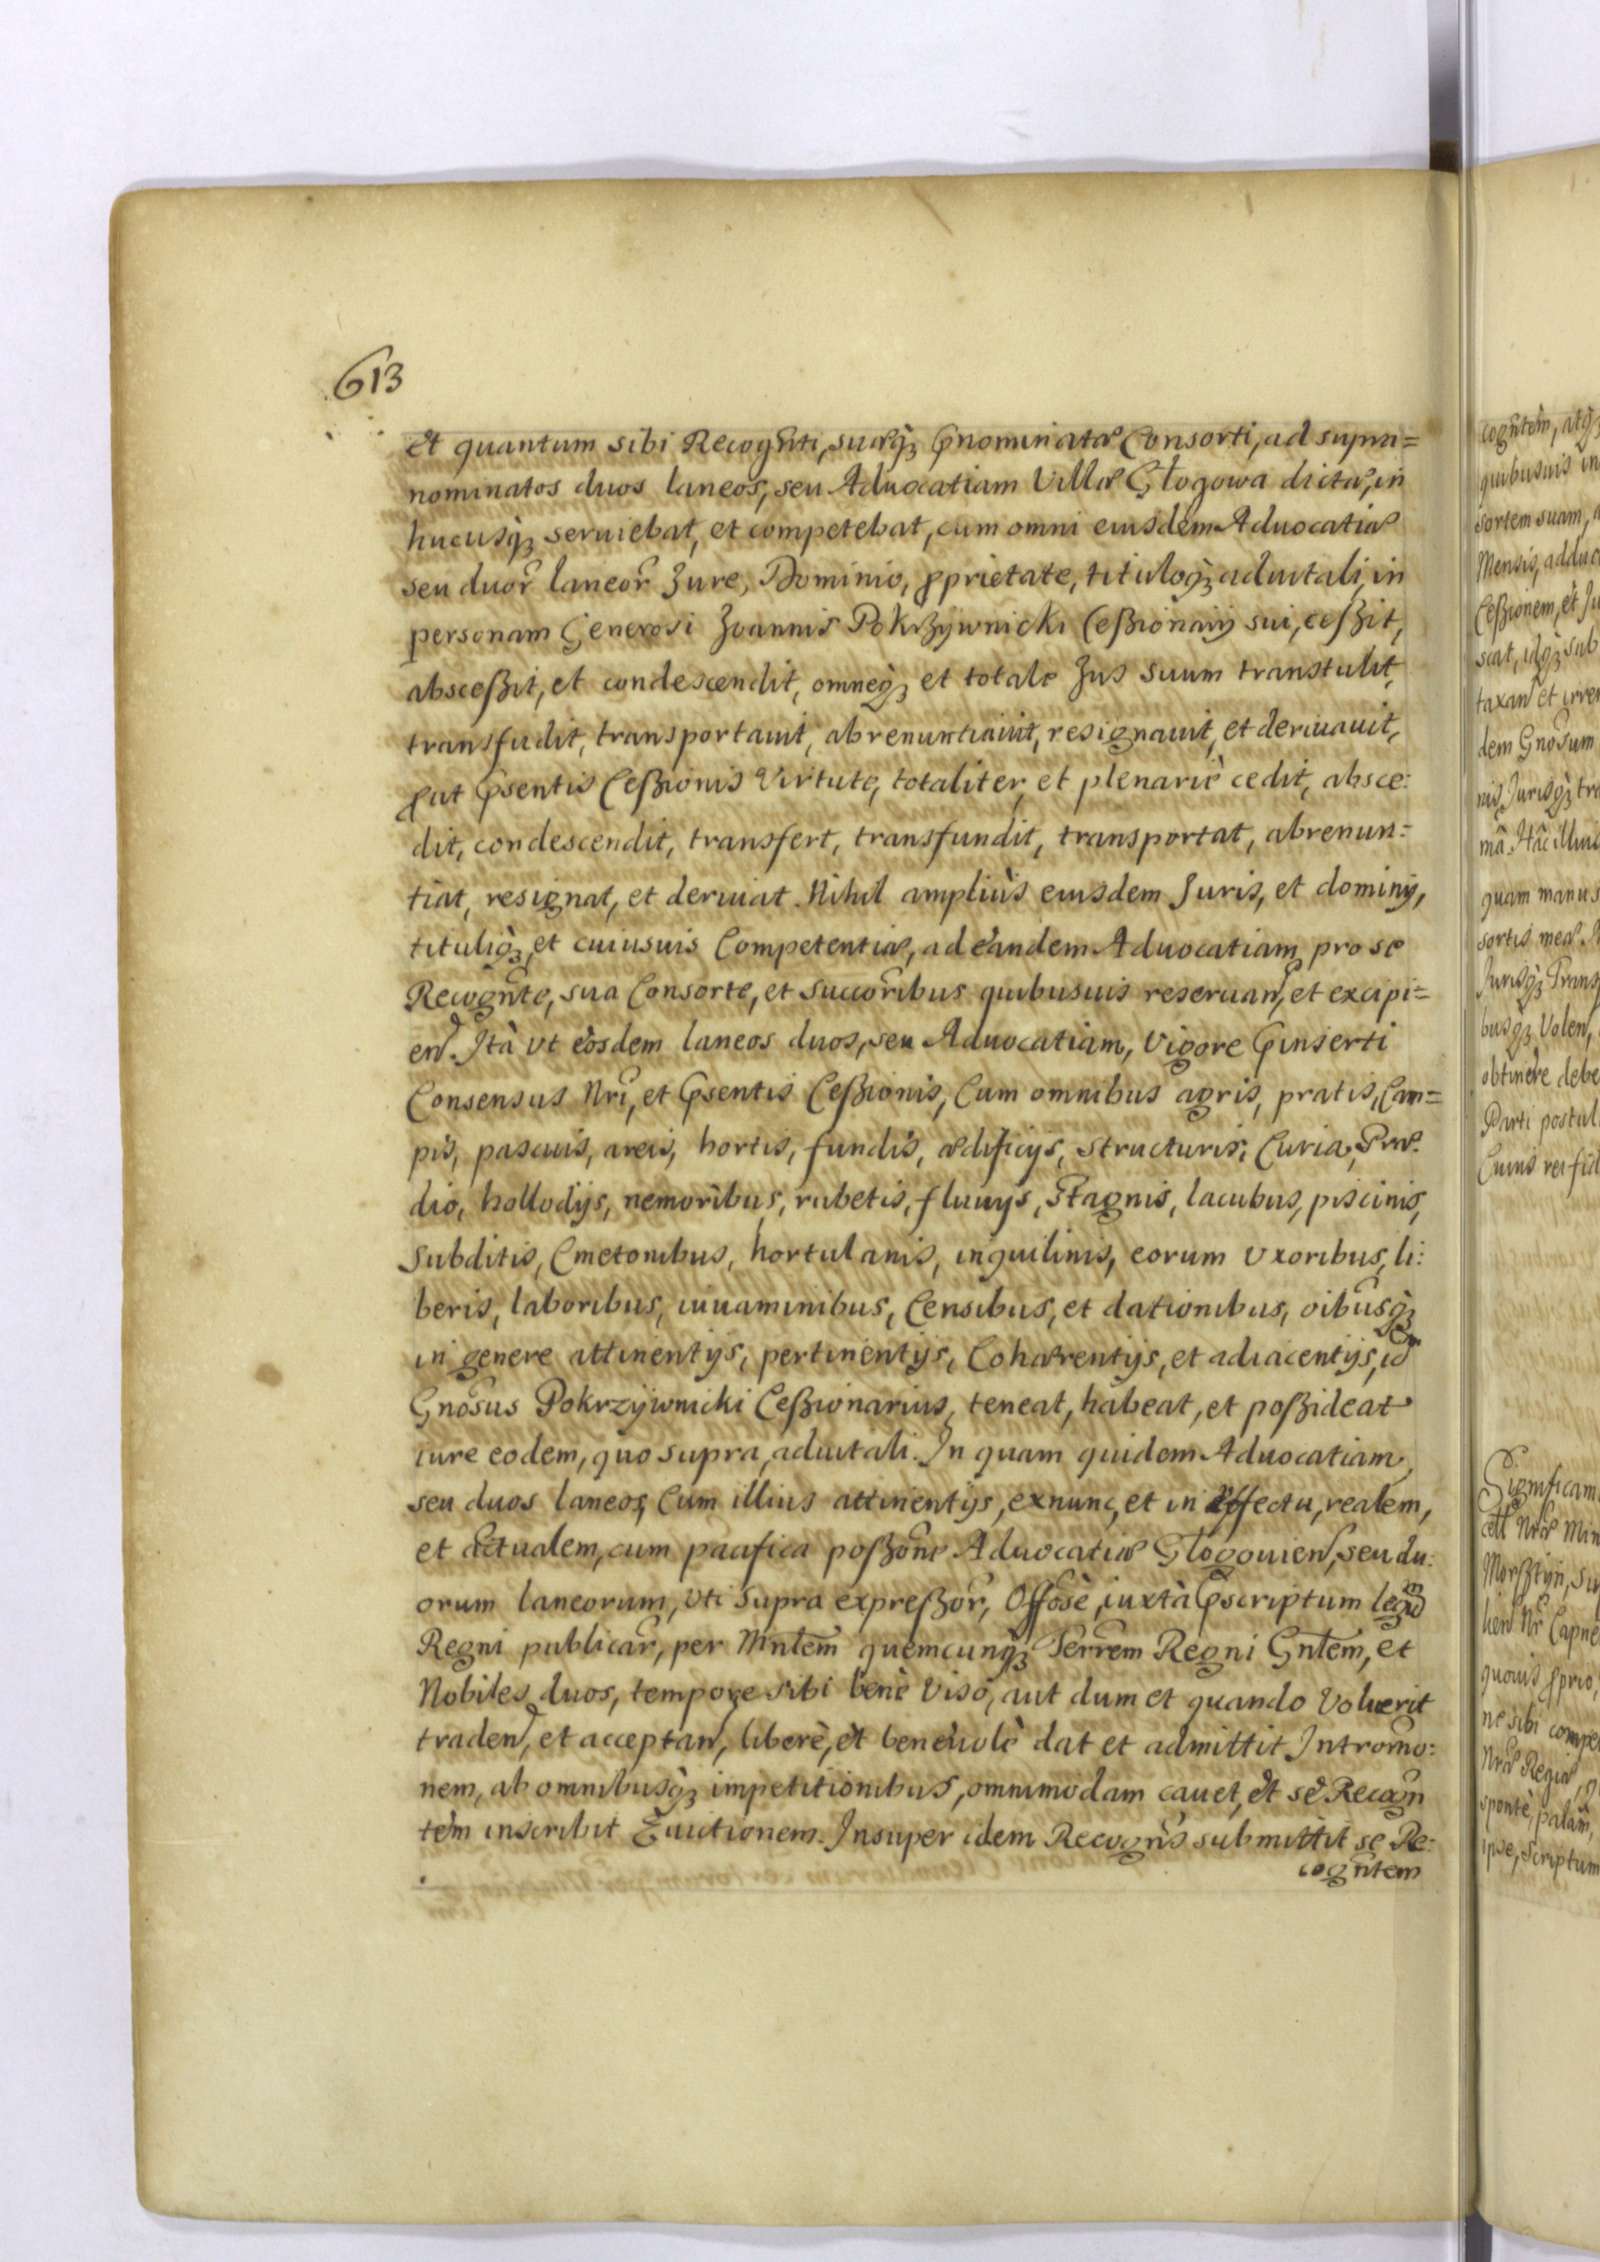 613
et quantum sibi Recognti, suæq; Pnominatæ Consorti, ad supra=
nominatos duos laneos, seu Aduocatiam Villæ Głogowa dictæ, in
hucusq; seruiebat, et competebat, cum omni eiusdem Aduocatiæ
seu duor laneor Jure, Dominio, pprietate, tituloq; aduitali, in
personam Generosi Joannis Pokrzywnicki Ceßionarij sui, ceßit,
absceßit, et condescendit, omneq; et totale Jus suum transtulit,
transfudit, transportauit, abrenuntiauit, resignauit, et deriuauit,
put Psentis Ceßionis Virtute, totaliter, et plenariè cedit, absce:
dit, condescendit, transfert, transfundit, transportat, abrenun=
tiat, resignat, et deriuat. Nihil ampliùs eiusdem Juris, et dominij,
tituliq;, et cuiusuis Competentiæ, ad eandem Aduocatiam pro se
Recognte, sua Consorte, et Succoribus quibusuis reseruan, et excipi=
en. Ità vt eosdem laneos duos, seu Aduocatiam, Vigore Pinserti
Consensus Nri, et Psentis Ceßionis, Cum omnibus agris, pratis, Cam=
pis, pascuis, areis, hortis, fundis, ædificijs, structuris, Curia, Præ
dio, hollodijs, nemoribus, rubetis, fluuijs, Stagnis, lacubus, piscinis,
Subditis, Cmetonibus, hortulanis, inquilinis, eorum vxoribus, li:
beris, laboribus, iuuaminibus, Censibus, et dationibus, oibusq;
in genere attinentijs, pertinentijs, Cohærentijs, et adiacentijs, id
Gnosus Pokrzywnicki Ceßionarius, teneat, habeat, et poßideat
iure eodem, quo supra, aduitali. In quam quidem Aduocatiam,
seu duos laneos, Cum illius attinentijs, exnunc, et in effectu, realem,
et actualem, cum pacifica poßone Aduocatiæ Głogouien, seu du:
orum laneorum, vti supra expreßor, Offose, iuxtà Pscriptum legum
Regni publicar, per Mntem quemcunq; Terrem Regni Gntem, et
Nobiles duos, tempore sibi benè Viso, aut dum et quando Voluerit
traden, et acceptan, liberè, et beneuolè dat et admittit Intromo:
nem, ab omnibusq; impetitionibus, omnimodam cauet, et se Recogn
tem inscribit Euictionem. Insuper idem Recogns submittit se Re:
cogntem
cogntem, atq;
quibusuis in
sortem suam,
Mensis, adduc
Ceßionem, et Ju
scat, idq; sub
taxan et irre
dem Gnosum
nis, Jurisq; tra
mã. Hãc illius
quam manus
sortis meæ.
Jurisq; Trans
busq; Volen,
obtinere debe
Parti postul
Cuius rei fid
Significam
Nræ Min
Morßtijn, Su
quouis pprio,
ne sibi compe
Nræ Regiæ,
spontè, palàm,
ipse, scriptum